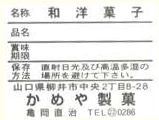 名称 和洋菓子
品名
賞味
期限
保存 直射日光及び高温多湿の
方法 場所を避けて下さい。
山口県柳井市中央2丁目8-28
かめや製菓
亀岡直治 TEL②0286